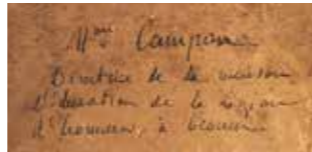 Mme Campan
Directrice de la maison
d'éducation de la Légion
d'honneur, à Ecouen